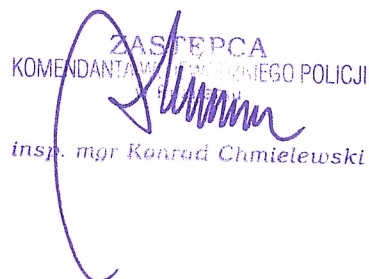 ZASTĘPCA
KOMENDANTA WOJEWÓDZKIEGO POLICJI
insp. mgr Konrad Chmielewski